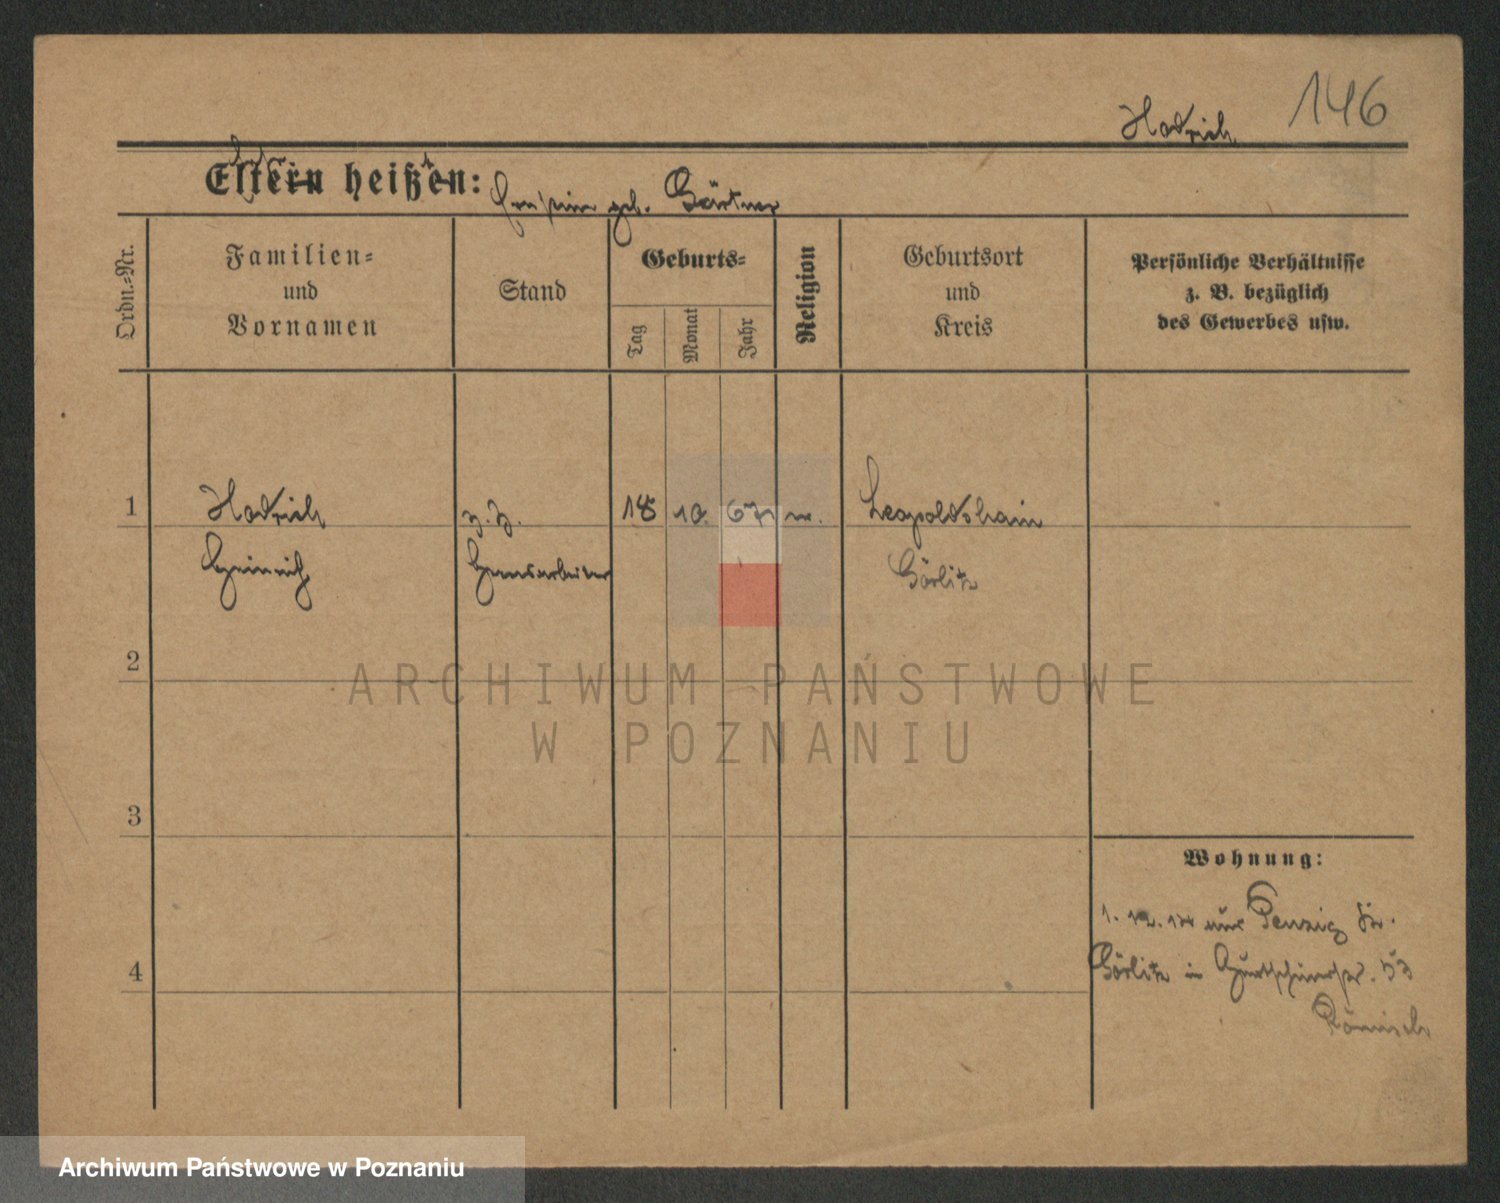 146
Hadrich
Eltern heißen:
geb. Gärtner
Ordn.-Nr.
Familien-
und
Vornamen
Stand
Geburts-
Tag
Monat
Jahr
Religion
Geburtsort
und
Kreis
Persönliche Verhältnisse
z. B. bezüglich
des Gewerbes usw.
1
Hadrich
Heinrich
z. Z.
Hausarbeiter
18
10.
67
Leopoldshain
Görlitz
2
3
4
ARCHIWUM PAŃSTWOWE
W POZNANIU
Wohnung:
1. 12. aus Penzig Kr.
Görlitz in 53
Römisch
Archiwum Państwowe w Poznaniu